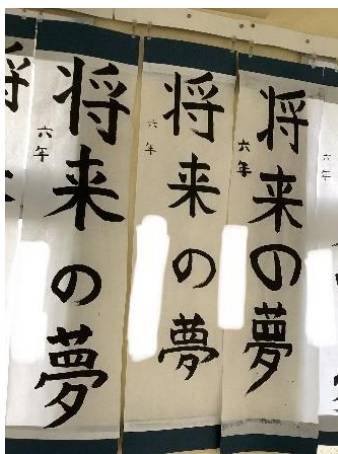 六年
将来の夢
六年
将来の夢
六年
将来の夢
六年
将